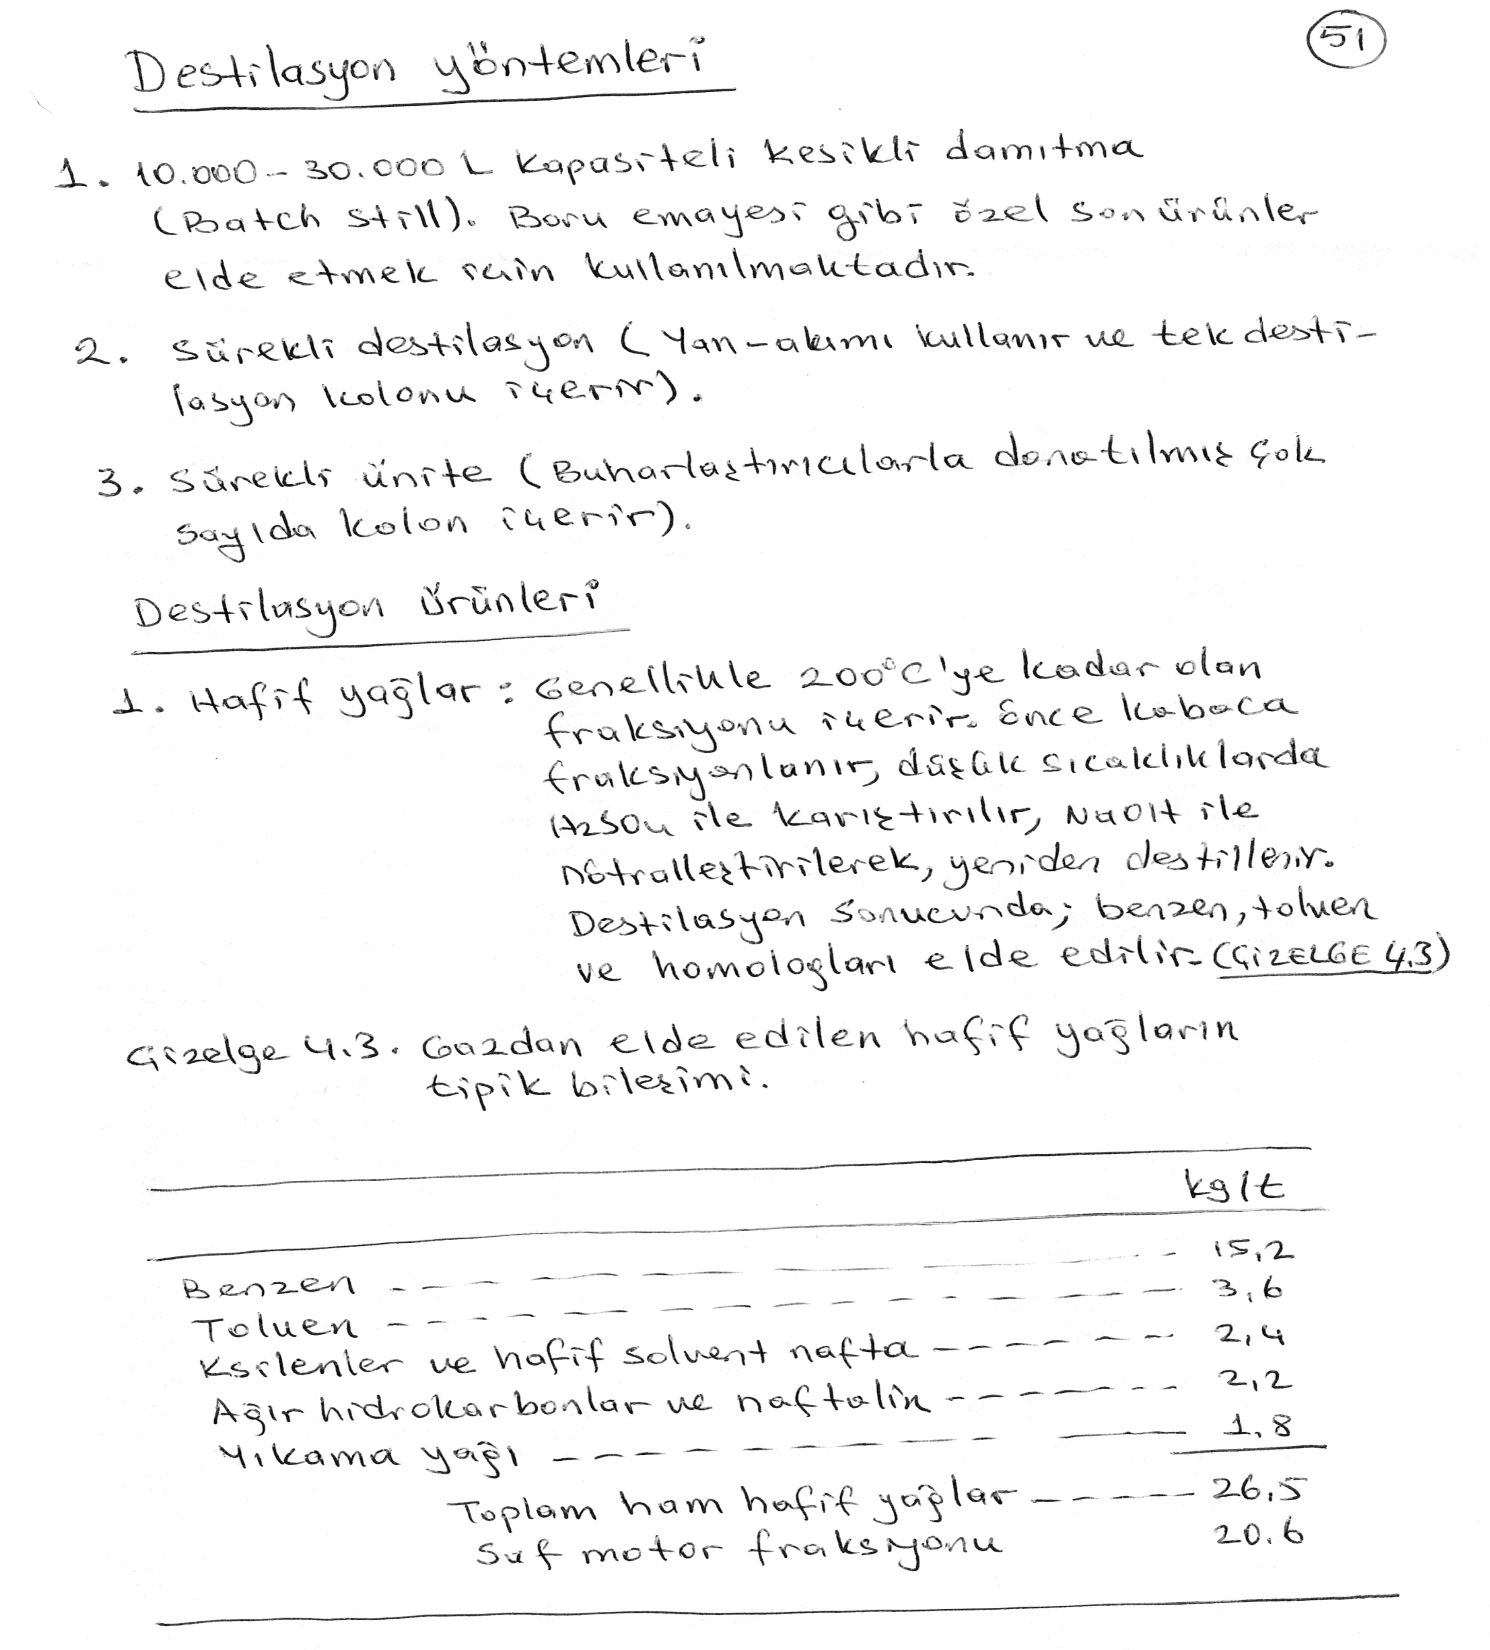 51
Destilasyon yöntemleri
1. 10.000 - 30.000 L kapasiteli kesikli damıtma
(Batch still). Boru emayesi gibi özel son ürünler
elde etmek için kullanılmaktadır.
2. Sürekli destilasyon (Yan-akımı kullanır ve tek desti-
lasyon kolonu içerir).
3. Sürekli ünite (Buharlaştırıcılarla donatılmış çok
sayıda kolon içerir).
Destilasyon ürünleri
1. Hafif yağlar : Genellikle 200°C'ye kadar olan
fraksiyonu içerir. Önce kabaca
fraksiyonlanır, düşük sıcaklıklarda
H2SO4 ile karıştırılır, NaOH ile
nötralleştirilerek, yeniden destillenir.
Destilasyon sonucunda; benzen, toluen
ve homologları elde edilir. (ÇİZELGE 4.3)
Çizelge 4.3. Gazdan elde edilen hafif yağların
tipik bileşimi.
kg/t
Benzen - - - - - - - - - - 15,2
Toluen - - - - - - - - - - 3,6
Ksilenler ve hafif solvent nafta - - - - - - 2,4
Ağır hidrokarbonlar ve naftalin - - - - - - - 2,2
Yıkama yağı - - - - - - - - - - 1,8
Toplam ham hafif yağlar - - - - - 26,5
Saf motor fraksiyonu 20.6